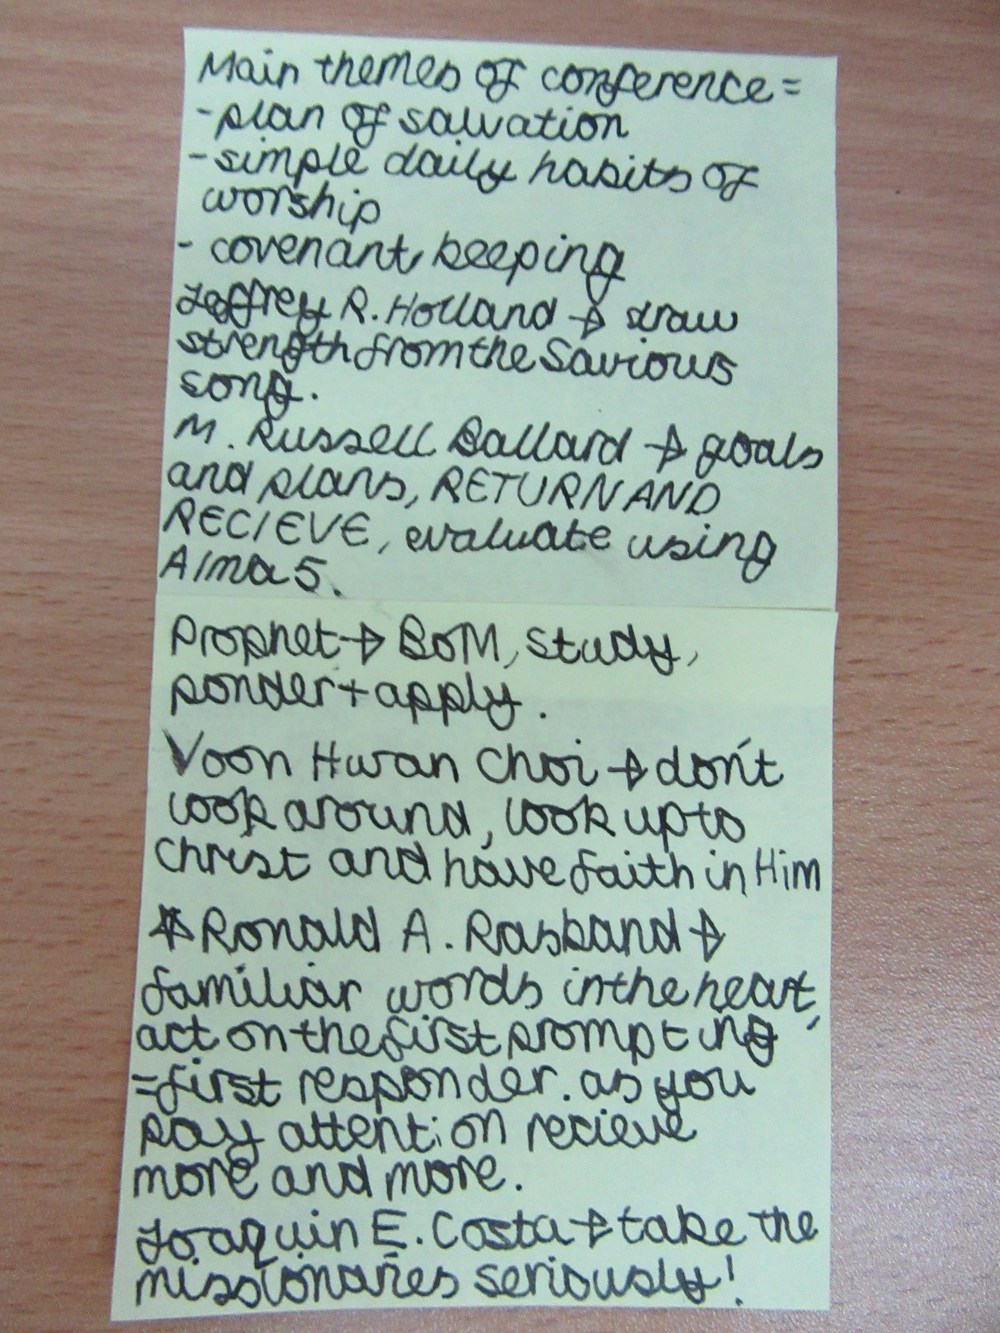 Main themes of conference =
- plan of salvation
- simple daily habits of
worship
- covenant keeping
Jeffrey R. Holland → draw
strength from the Saviours
song.
M. Russell Ballard → goals
and plans, RETURN AND
RECIEVE, evaluate using
Alma 5.
Prophet → BoM, study,
ponder + apply.
Yoon Hwan Choi → don't
look around, look up to
Christ and have faith in Him
* Ronald A. Rasband →
familiar words in the heart,
act on the first prompting
= first responder. as you
pay attention recieve
more and more.
Joaquin E. Costa → take the
missionaries seriously!